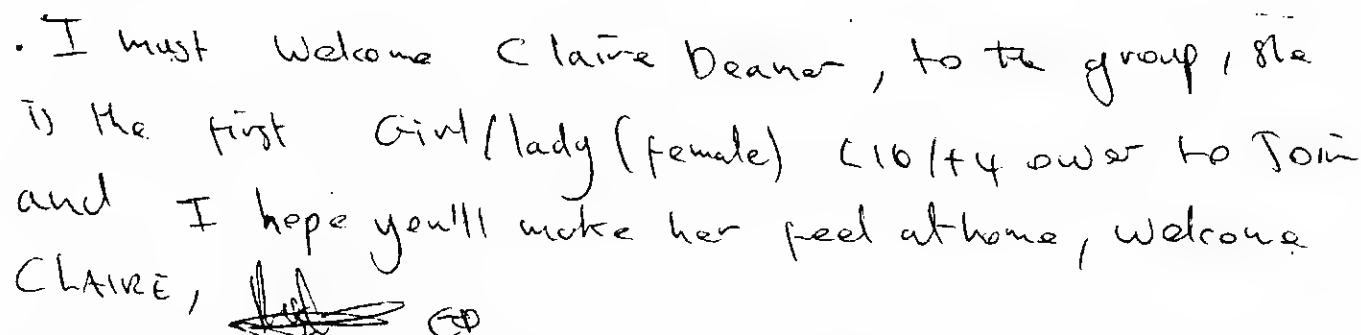 . I must Welcome Claire Deaner, to the group, she
is the first Girl/lady (female) C16/+4 owner to Join
and I hope you'll make her feel at home, welcome
CLAIRE, ED